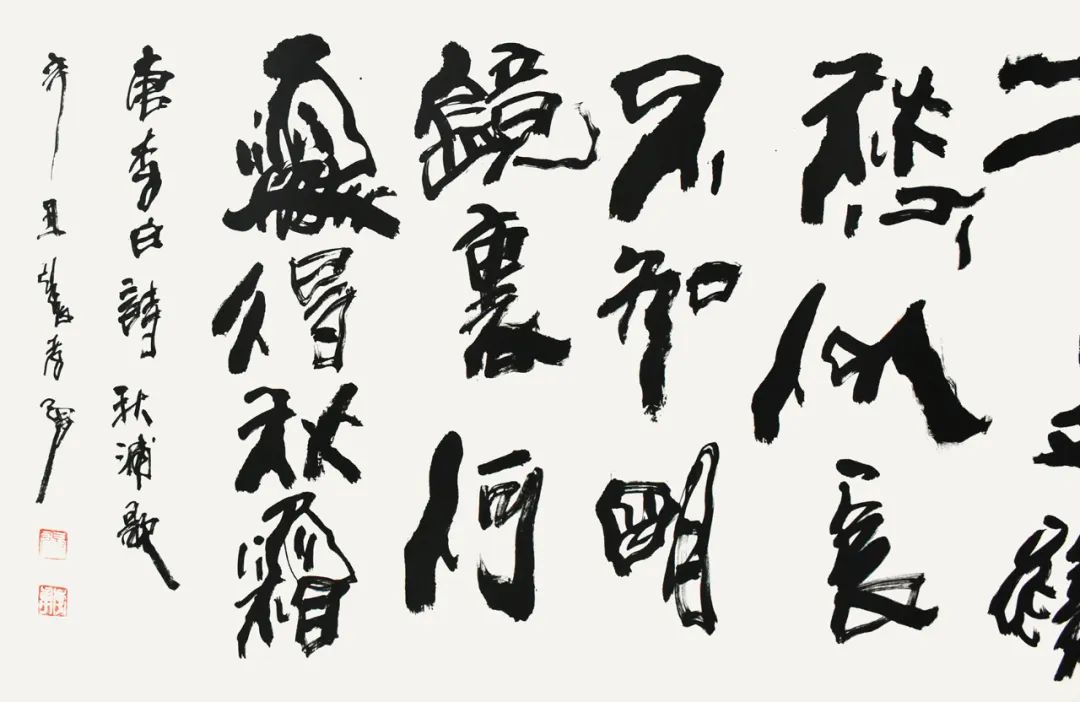 愁似長
不知明
鏡裏何
處得秋霜
唐李白詩秋浦歌
辛丑